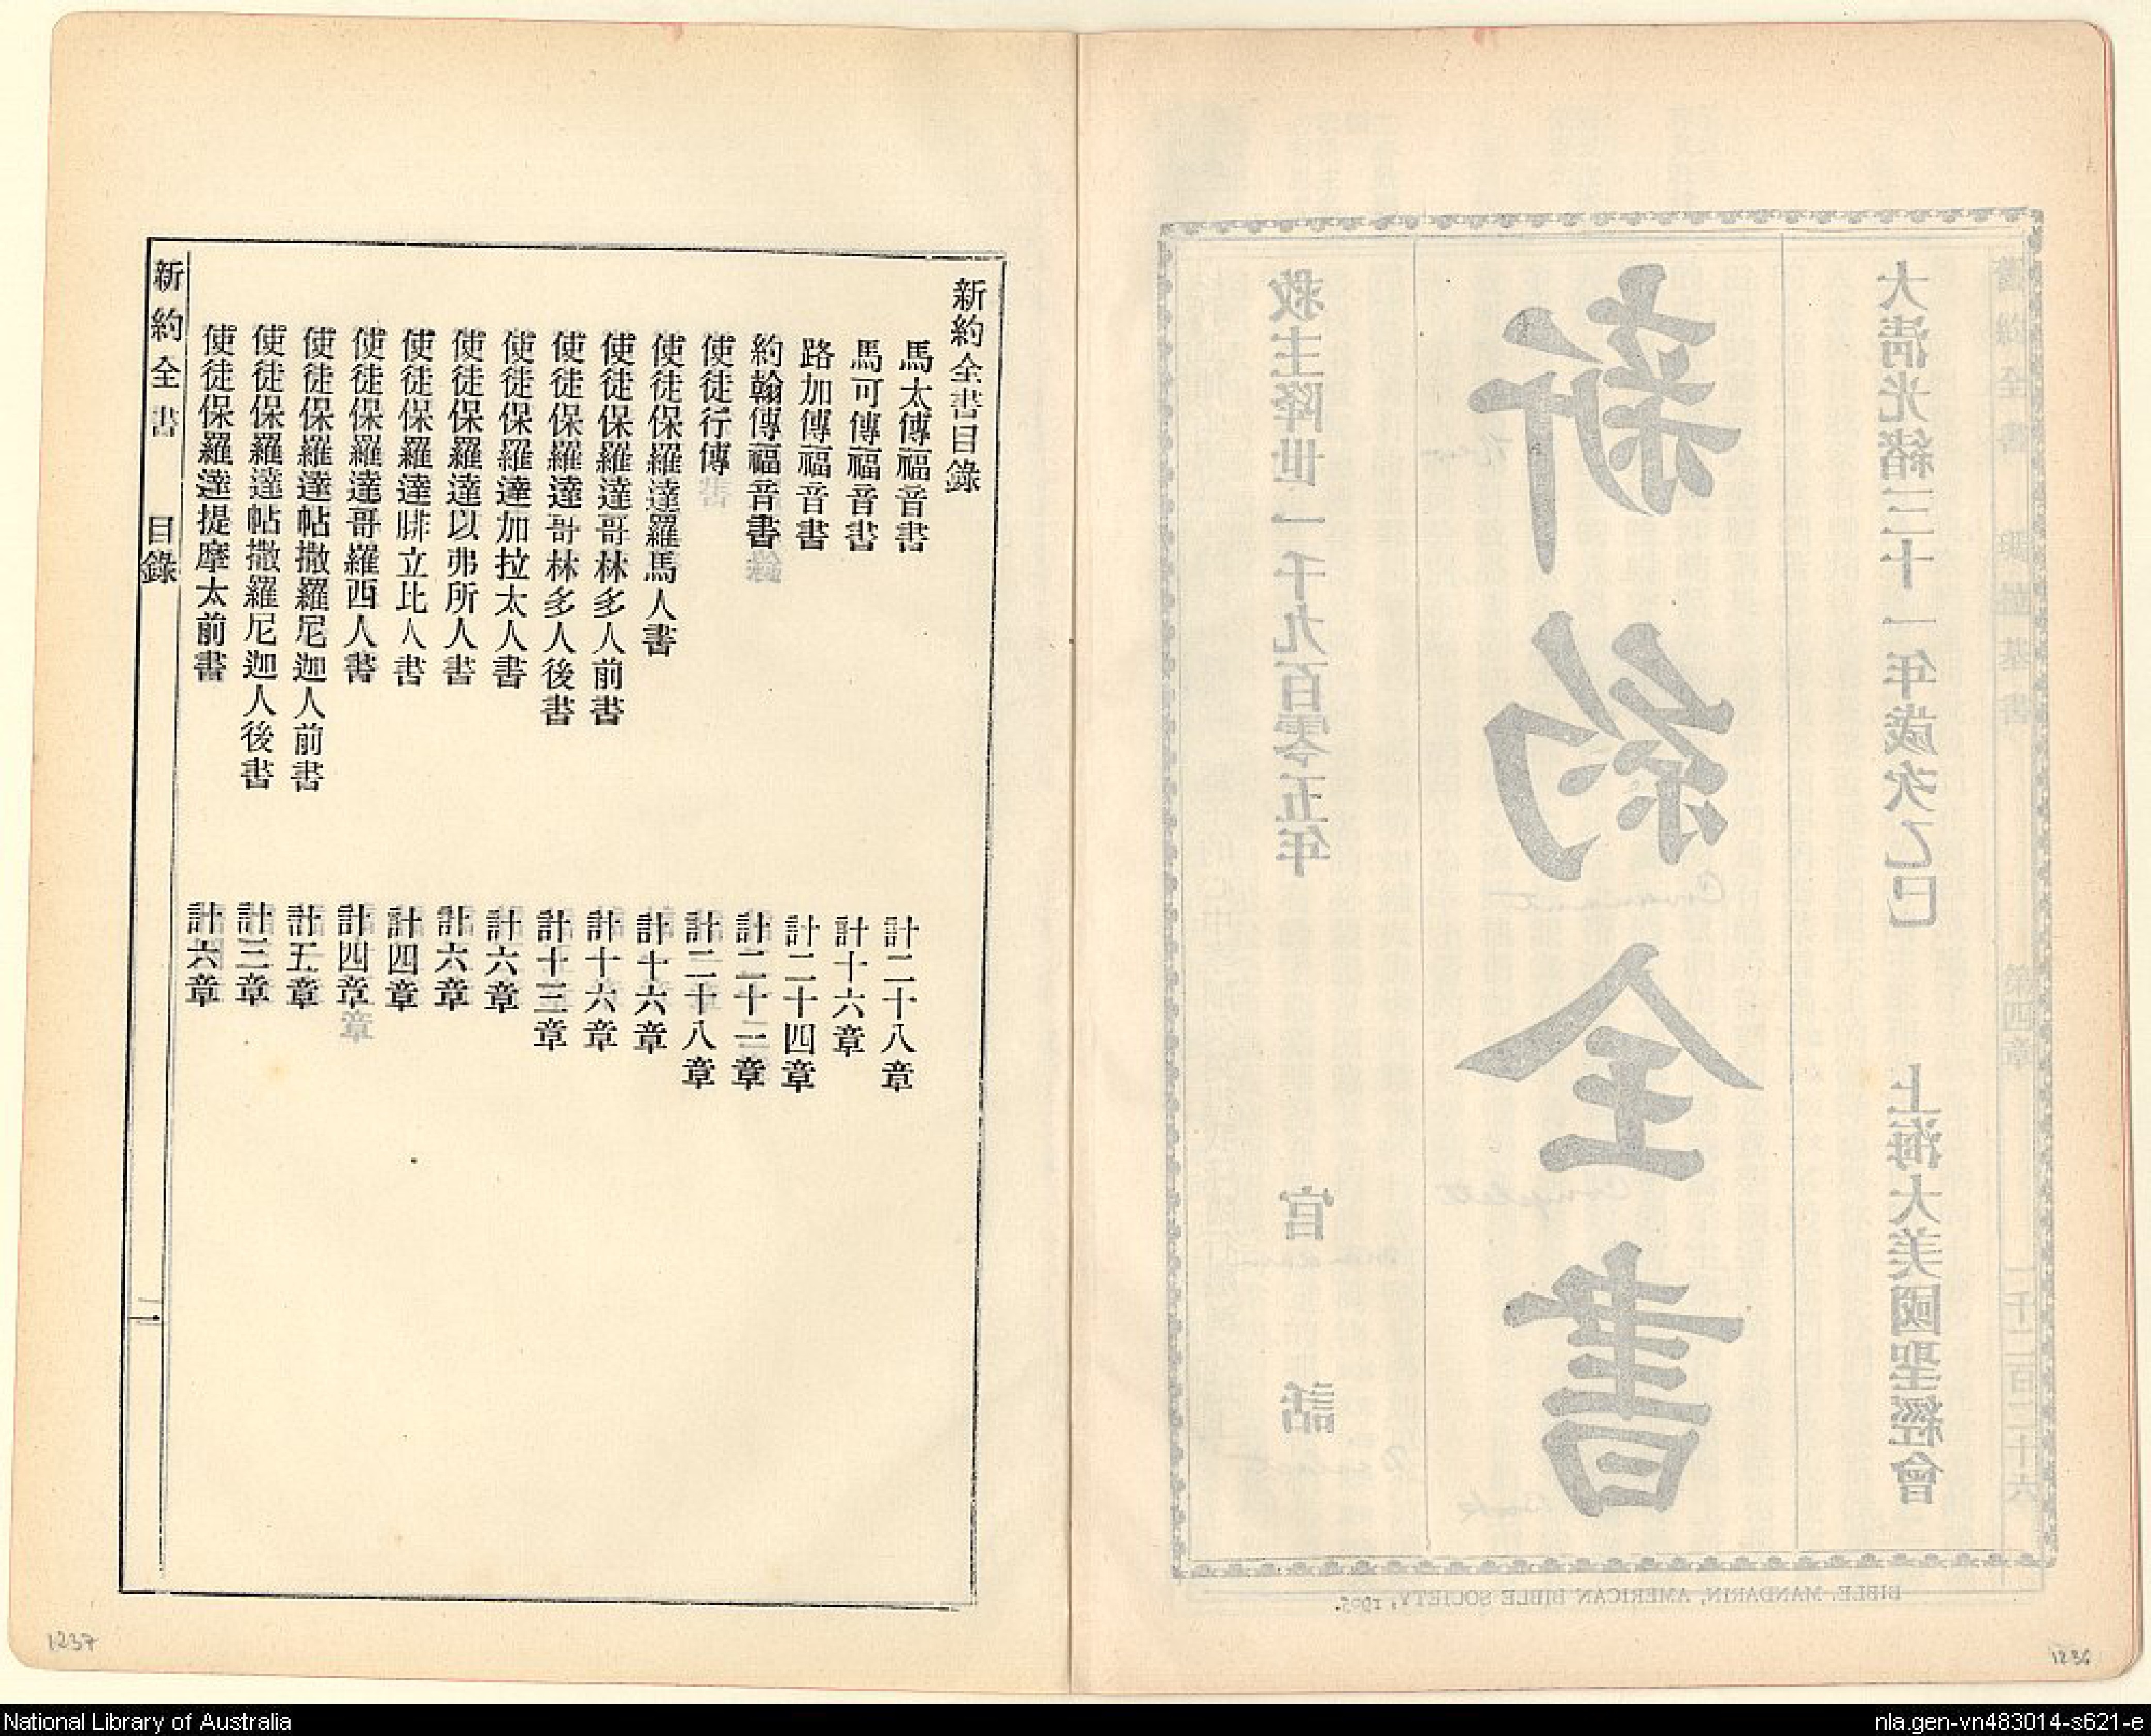 大清光緒三十一年歲次乙巳 上海大美國聖經會
新約全書
救主降世一千九百零五年 官話
BIBLE, MANDARIN, AMERICAN BIBLE SOCIETY, 1905.
1236
新約全書目錄
馬太傳福音書 計二十八章
馬可傳福音書 計十六章
路加傳福音書 計二十四章
約翰傳福音書 計二十一章
使徒行傳 計二十八章
使徒保羅達羅馬人書 計十六章
使徒保羅達哥林多人前書 計十六章
使徒保羅達哥林多人後書 計十三章
使徒保羅達加拉太人書 計六章
使徒保羅達以弗所人書 計六章
使徒保羅達腓立比人書 計四章
使徒保羅達哥羅西人書 計四章
使徒保羅達帖撒羅尼迦人前書 計五章
使徒保羅達帖撒羅尼迦人後書 計三章
使徒保羅達提摩太前書 計六章
新約全書 目錄 一
1237
National Library of Australia
nla.gen-vn483014-s621-e